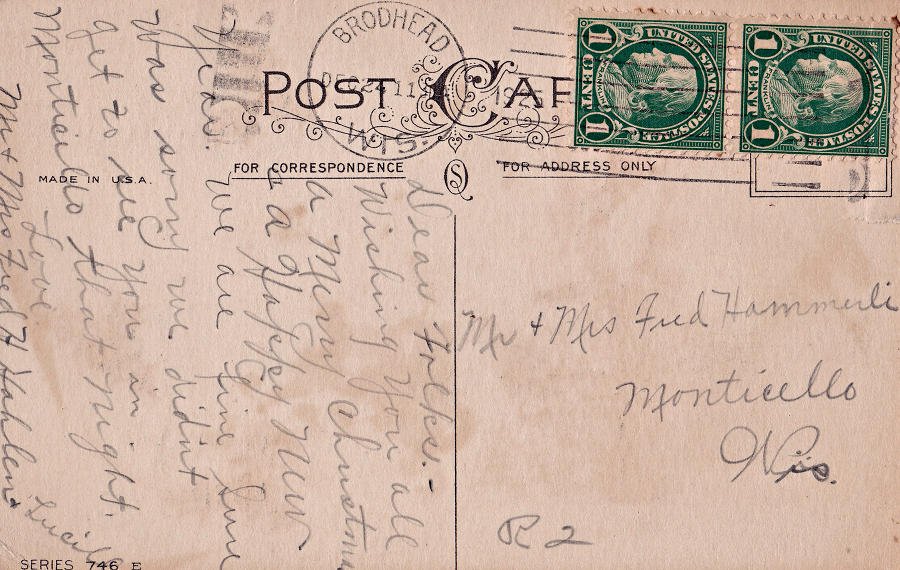 BRODHEAD
DEC 24
11
192
WIS.
POST CAR
UNITED STATES POSTAGE
FRANKLIN
1 CENT 1
UNITED STATES POSTAGE
FRANKLIN
1 CENT 1
MADE IN U.S.A.
FOR CORRESPONDENCE
FOR ADDRESS ONLY
Dear Folks:-
Wishing you all
a Merry Christmas
& a Happy New
Year. We are fine. Sure
was sorry we didn't
get to see you in
Monticello that night.
Love
Mr + Mrs Fred H Hahlen +
Lucile
Mr + Mrs Fred Hammerli
Monticello
Wis.
R 2
SERIES 746 E